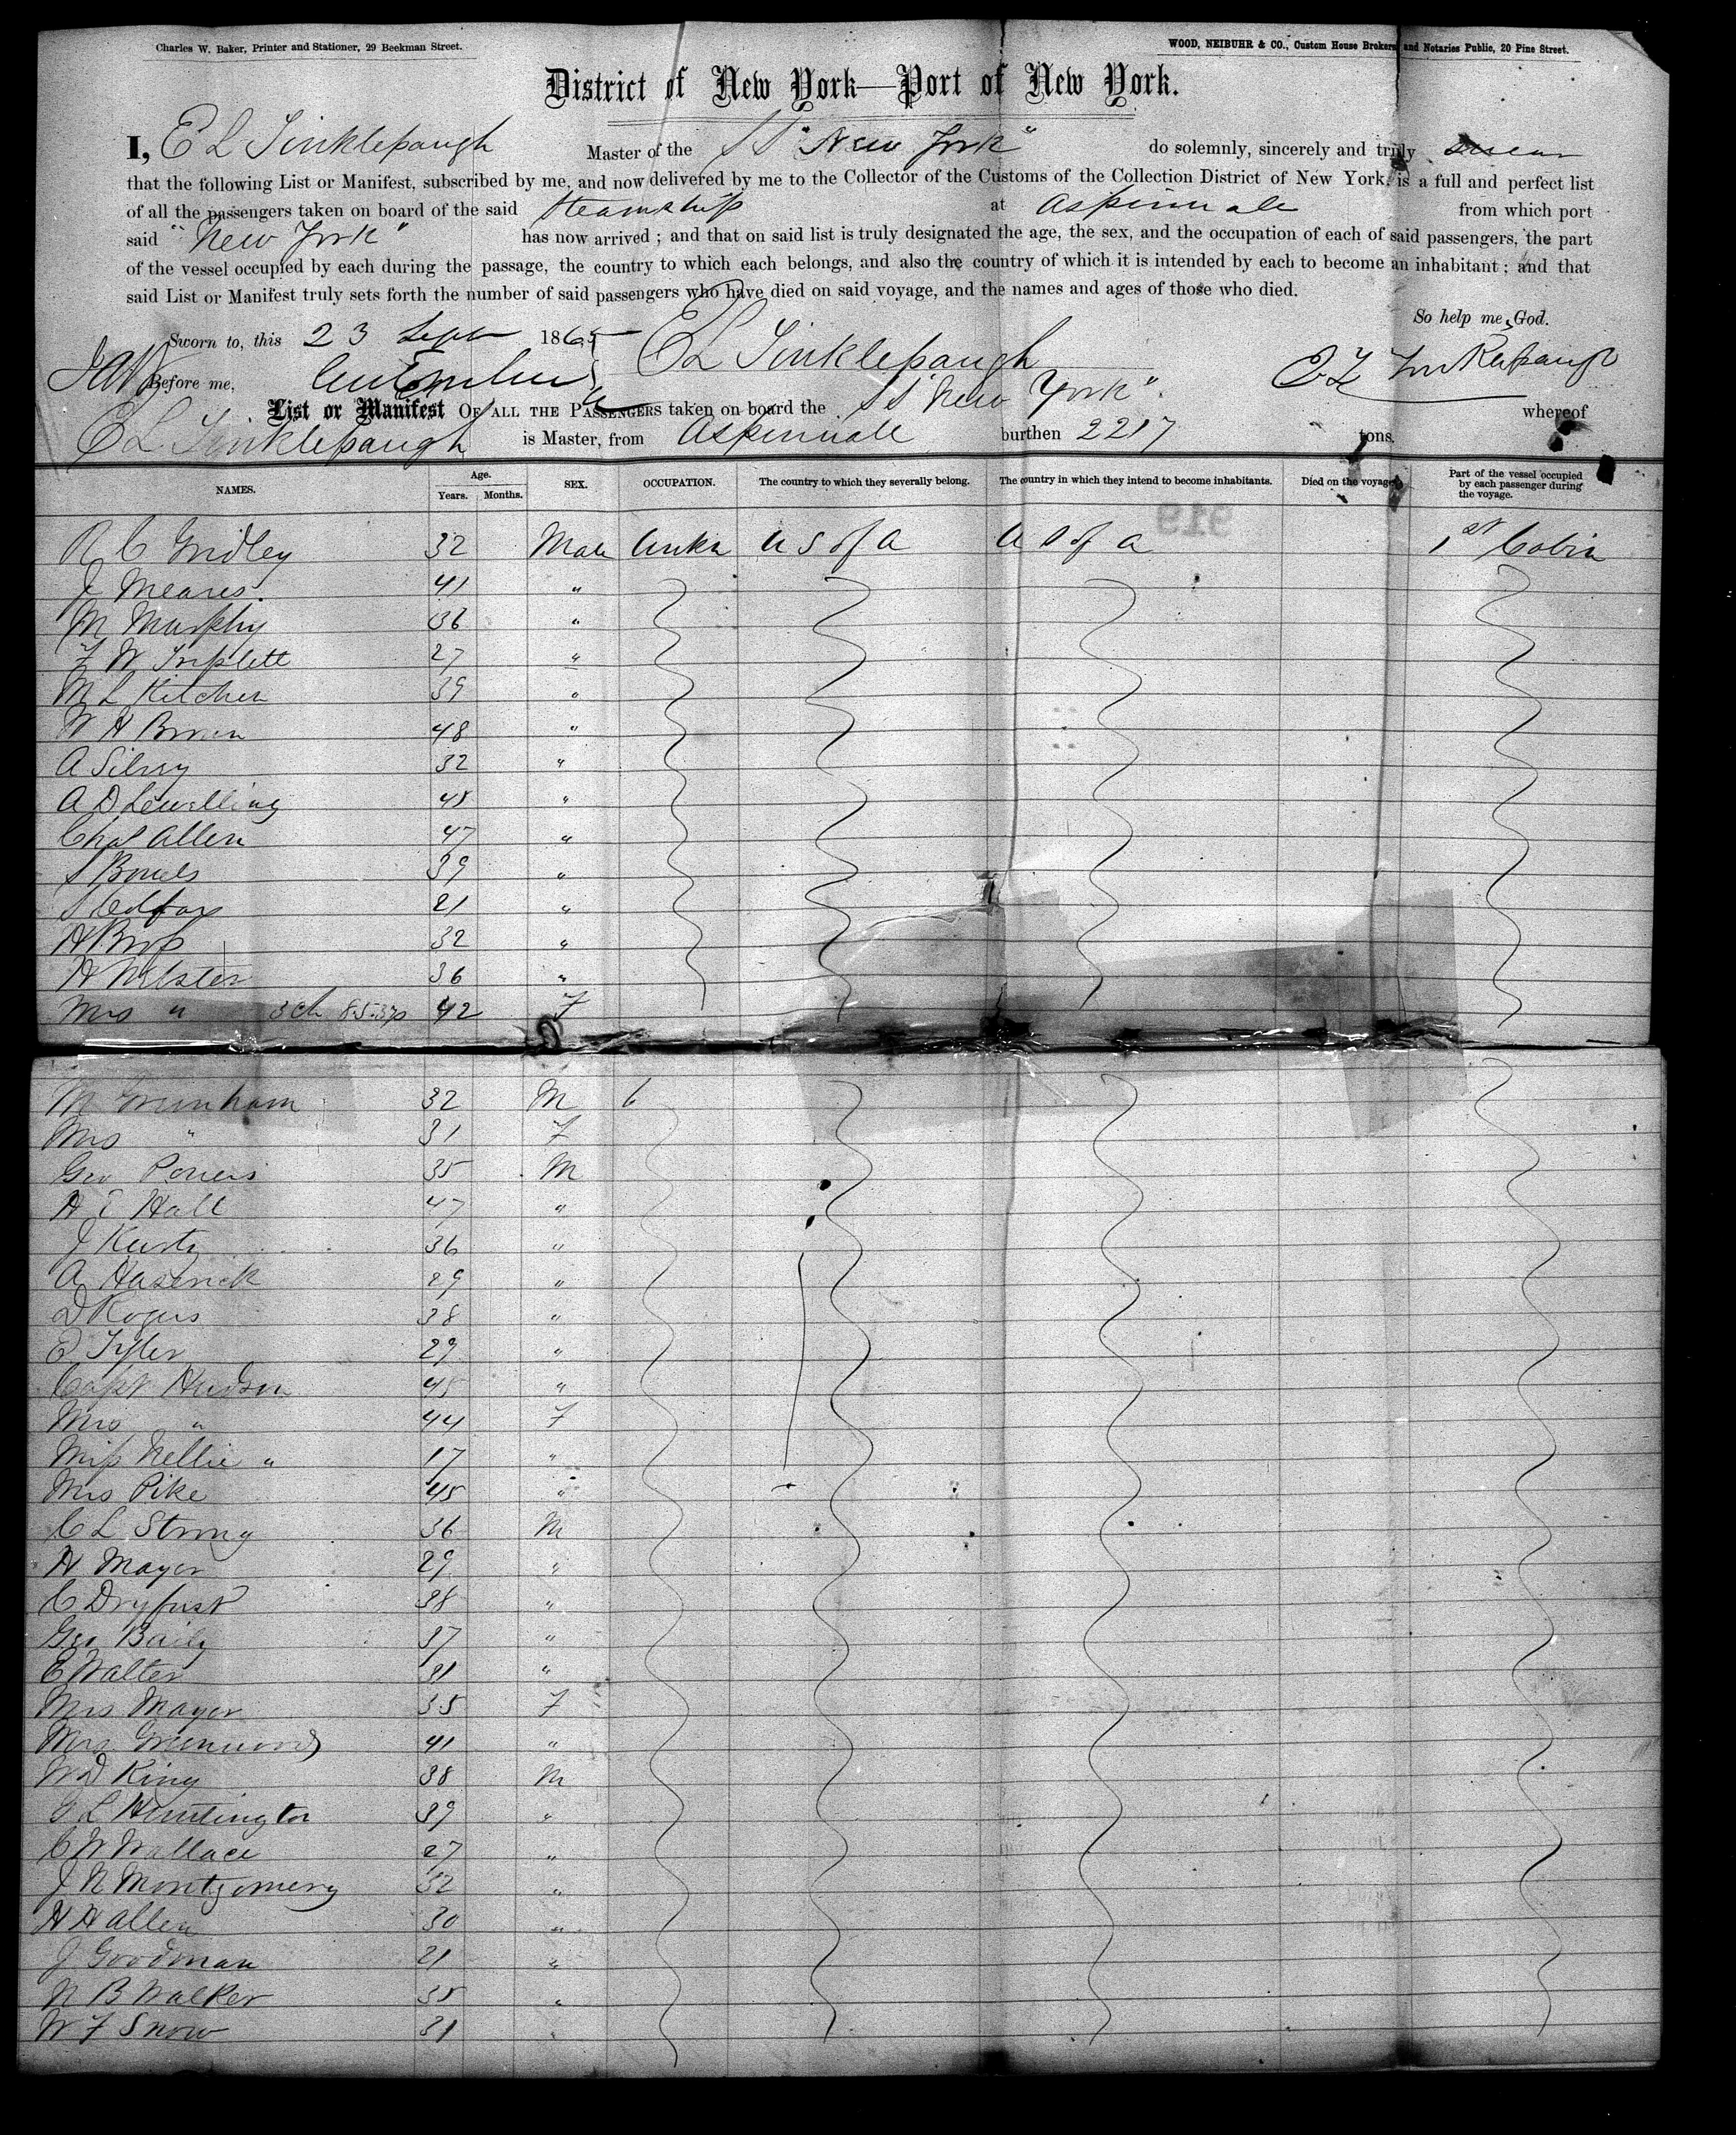 Charles W. Baker, Printer and Stationer, 29 Beekman Street.
WOOD, NEIBUHR & CO., Custom House Brokers and Notaries Public, 20 Pine Street.
District of New York—Port of New York.
I, E L Tinklepaugh Master of the SS "New York" do solemnly, sincerely and truly swear
that the following List or Manifest, subscribed by me, and now delivered by me to the Collector of the Customs of the Collection District of New York, is a full and perfect list
of all the passengers taken on board of the said Steamship at Aspinwall from which port
said "New York" has now arrived; and that on said list is truly designated the age, the sex, and the occupation of each of said passengers, the part
of the vessel occupied by each during the passage, the country to which each belongs, and also the country of which it is intended by each to become an inhabitant; and that
said List or Manifest truly sets forth the number of said passengers who have died on said voyage, and the names and ages of those who died.
So help me, God.
Sworn to, this 23 Sept 1865 E L Tinklepaugh
Before me, E L Tinklepaugh
List or Manifest OF ALL THE PASSENGERS taken on board the SS "New York" whereof
E L Tinklepaugh is Master, from Aspinwall burthen 2217 tons.
NAMES. Age. Years. Months. SEX. OCCUPATION. The country to which they severally belong. The country in which they intend to become inhabitants. Died on the voyage. Part of the vessel occupied by each passenger during the voyage.
919
R C Gridley 32 Male U S of A U S of A 1st Cabin
J Meares 41 "
M Murphy 36 "
F W Triplett 27 "
M L Kitchen 39 "
W H Brown 48 "
A Silvey 32 "
A D Lewelling 45 "
Chas Allen 47 "
S Bowles 39 "
S Colfax 21 "
H Bros 32 "
H Webster 36 "
Mrs " 3 ch 8.5.3 42 F
M Greenham 32 M
Mrs " 31 F
Geo Powers 35 M
H E Hall 47 "
J Kurtz 36 "
A Hasenick 29 "
D Rogers 38 "
E Tyler 29 "
Capt Hudson 45 "
Mrs " 44 F
Miss Nellie " 17 "
Mrs Pike 45 "
C L Strong 36 M
H Mayer 29 "
C Dryfust 38 "
Geo Baily 37 "
E Walter 31 "
Mrs Mayer 35 F
Mrs Greenwood 41 "
W D King 38 M
G L Huntington 39 "
C W Wallace 27 "
J N Montgomery 32 "
H H Allen 30 "
J Goodman 21 "
N B Walker 35 "
W F Snow 31 "